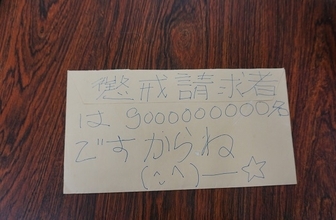 懲戒請求者
は9000000000名
ですからね
(^_^)―☆